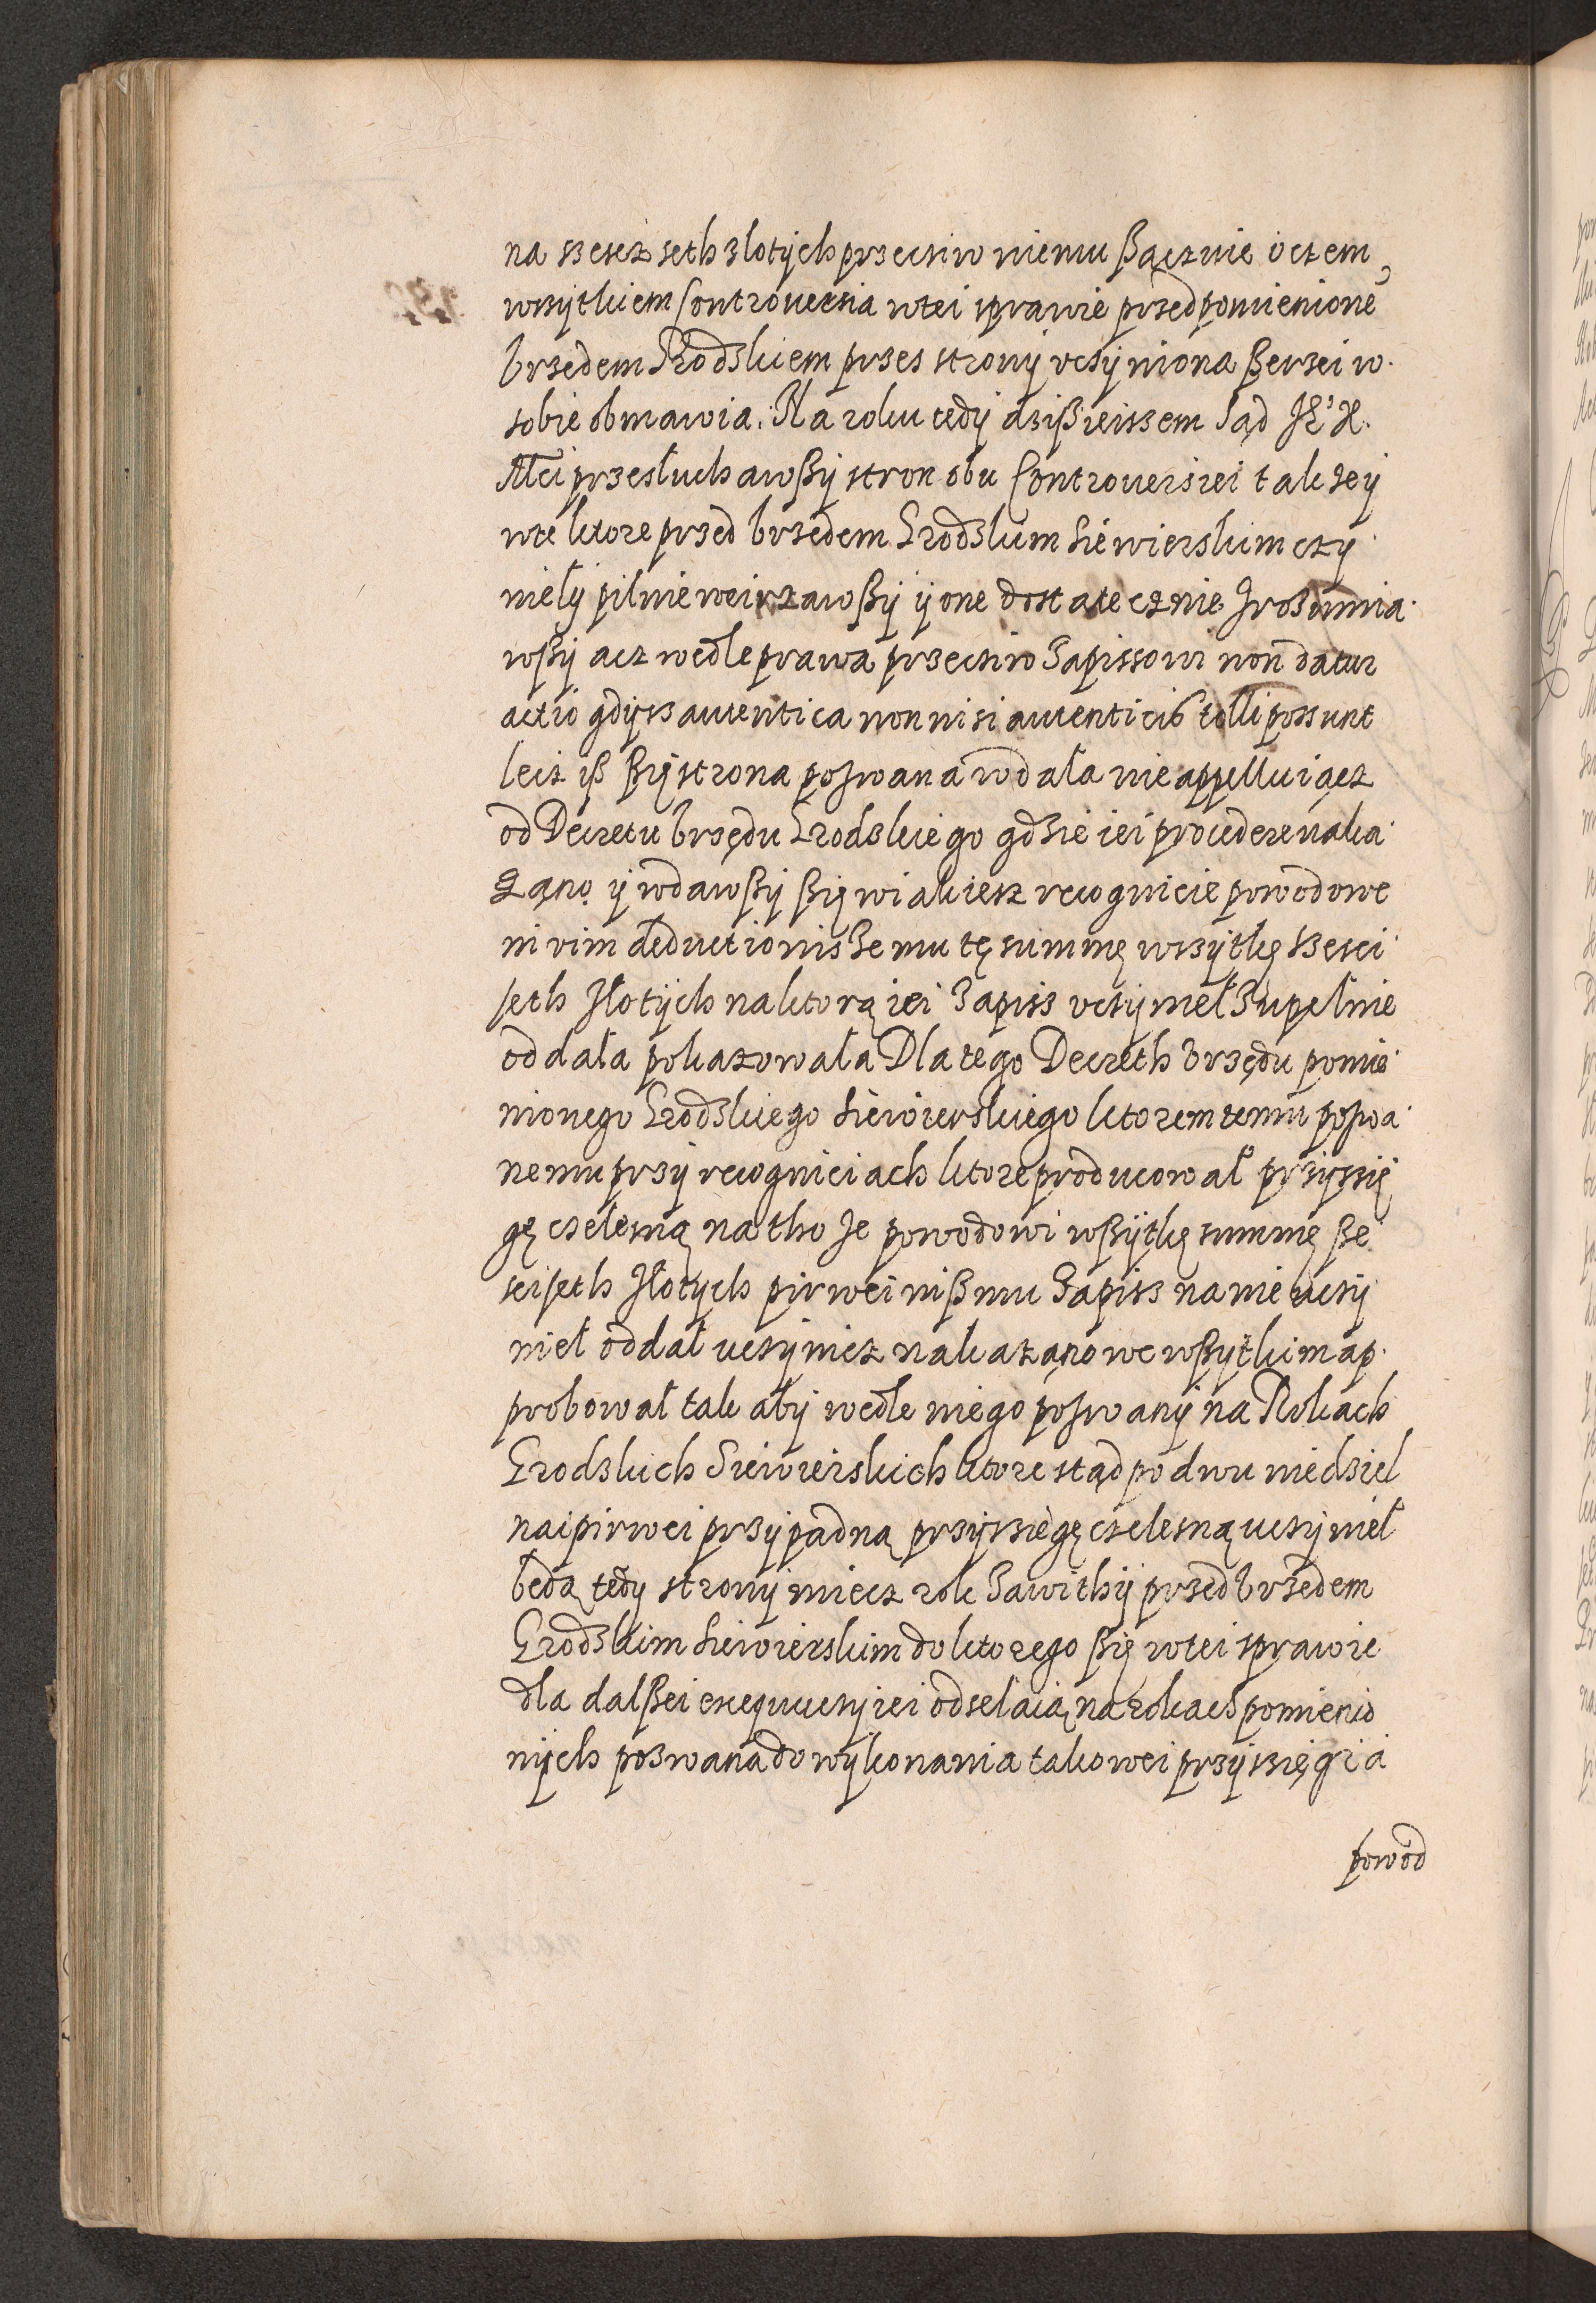 na szescz seth zlotych przeciw niemu ßącznie o czem
wssytkiem Controuersia wtei sprawie przed pomienione
Vrzedem Grodzkiem przes strony vczyniona ßerzei w
sobie obmawia. Na roku tedy dzißieissem Sąd
Mci przesłuchawßy stron obu Controuersiei takze y
wte ktore przed Vrzedem Grodzkim Siewierskim czy
niely pilnie weirzawßy y one dostatecznie zrozumia
wßy acz wedle prawa przeciw Zapissowi non datur
actio gdysz autentica non nisi autenticis tolli possunt
lecz iß ßię strona pozwana wdała nie appelluiącz
od Decretu Vrzędu Grodzkiego gdzie iei procedere naka
zano y wdawßy ßię wiakiesz recognicie powodowe
ni vim deductionis ze mu tę summę wszytkę szesci
seth złotych na ktorą iei Zapiss vczyniel zupełnie
oddała pokazowała Dla tego Decreth Vrzędu pomie
nionego Grodzkiego Siewierskiego ktorem temu pozwa
nemu przy recogniciach ktore producował przyssię
gę czelesną na tho ze powodowi wßytkę summę ße
sciseth złotych pirwei niß mu Zapiss na nie vczy
niel oddał uczynicz nakazano we wßytkim ap
probował tak aby wedle niego pozwany na Rokach
Grodzkich Siewierskich ktore stąd po dwu niedziel
naipirwei przypadną przyssięgę czelesną uczyniel
będą tedy strony miecz rok Zawithy przed Vrzedem
Grodzkim Siewierskim do ktorego ßię wtei sprawie
dla dalßei exequucyiei odselaią na rokach pomienio
nych pozwana do wykonania takowei przyssięgi a
powod